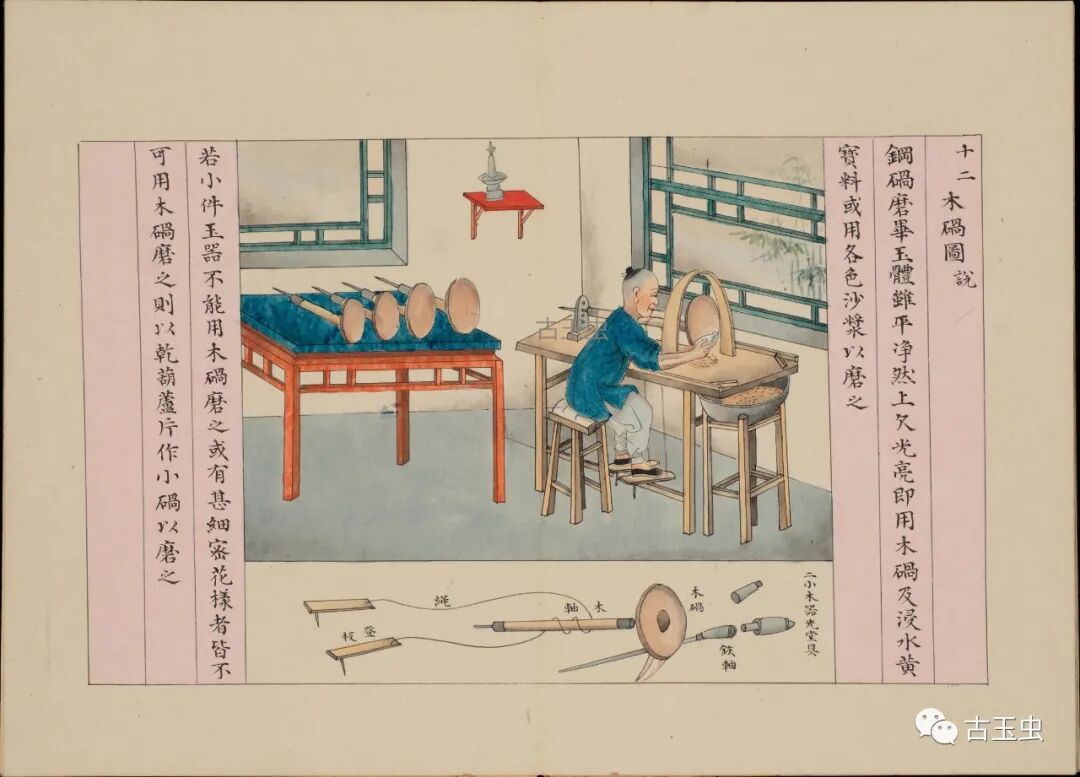 十二 木碢圖 說
鋼碢磨畢玉體雖平净然上欠光亮即用木碢及浸水黄
寶料或用各色沙漿以磨之
二小木器光堂具
木碢
鉄軸
木軸
繩
登板
若小件玉器不能用木碢磨之或有甚細密花樣者皆不
可用木碢磨之則以乾葫蘆片作小碢以磨之
古玉虫